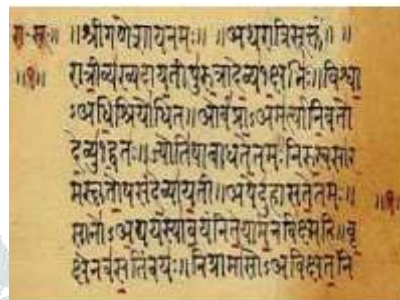 रा॰सू॰ ॥श्रीगणेशायनमः॥ ॥अथरात्रिसूक्तं॥ ॥
॥१॥ रात्रीव्यख्यदायतीपुरुत्रादेव्य१क्षभिः॥विश्वा
ऽअधिश्रियोधित॥ओर्वप्राऽअमर्त्यानिवतो
देव्यु१द्वतः॥ज्योतिषाबाधतेतमः॥निरुस्वसार
मस्कृतोषसंदेव्यायती॥अपेदुहासतेतमः॥ ॥१॥
सानोऽअद्ययस्यावयंनितेयामन्नविक्ष्महि॥वृ
क्षेनवसतिंवयः॥निग्रामासोऽअविक्षतनि